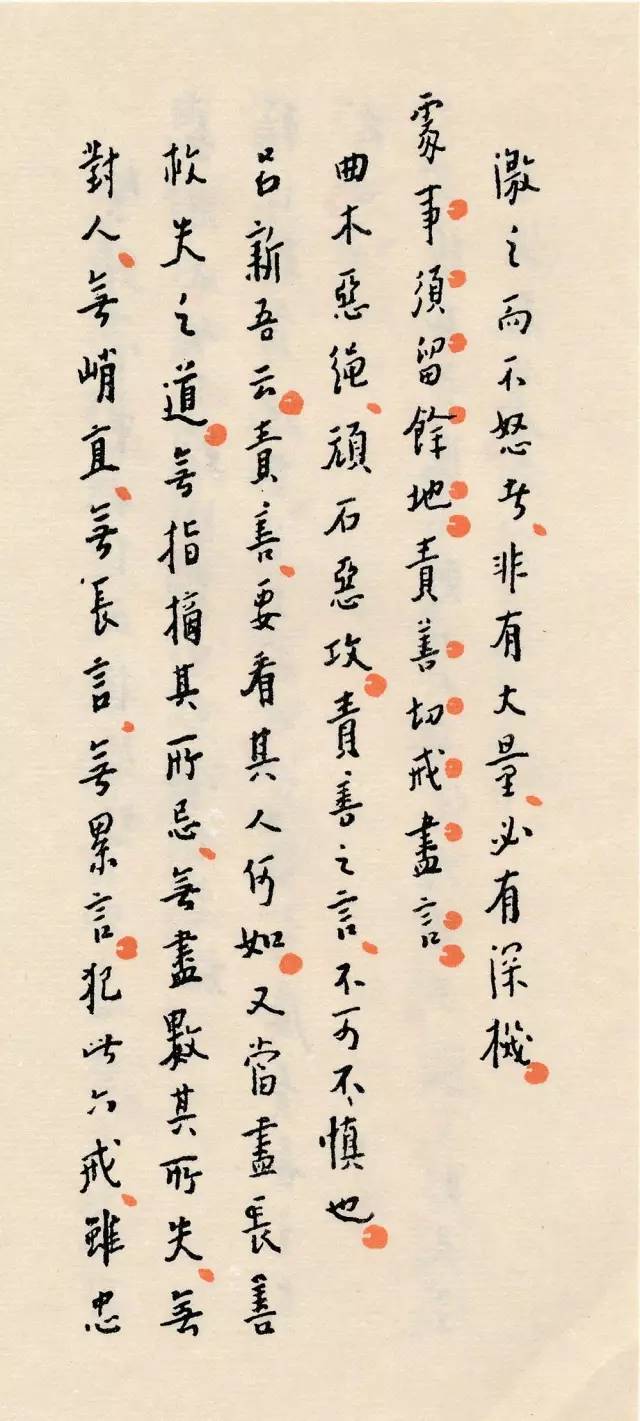 激之而不怒者、非有大量、必有深機。
處事須留餘地。責善切戒盡言。
曲木惡繩、頑石惡攻。責善之言、不可不慎也。
呂新吾云。責善、要看其人何如。又當盡長善
救失之道。無指摘其所忌、無盡數其所失、無
對人、無峭直、無長言、無累言。犯此六戒、雖忠